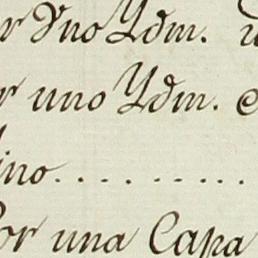 r Vno Ydm.
r uno Ydm. e
ino. . . . . . . . . .
or una Capa